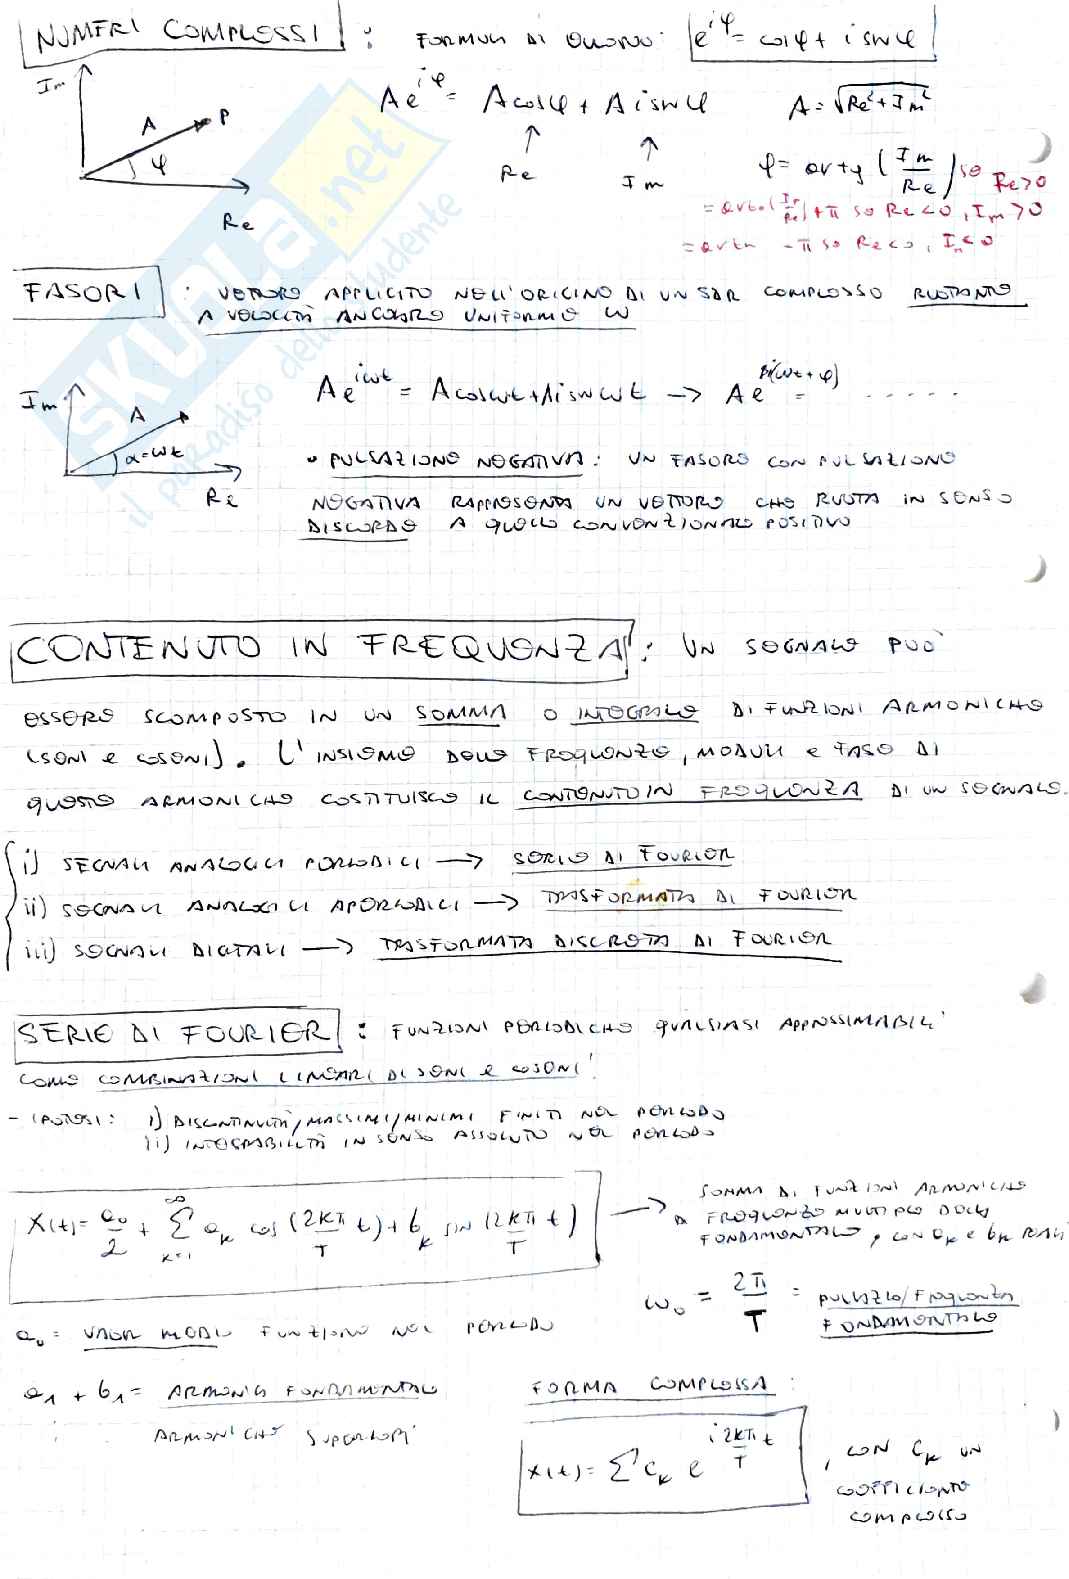 NUMERI COMPLESSI : FORMULA DI EULERO: e^{iφ} = cosφ + i senφ
Im
A P
φ
Re
Ae^{iφ} = Acosφ + Ai senφ
A = √(Re² + Im²)
Re Im
φ = artg (Im/Re) se Re>0
= artg (Im/Re) + π se Re<0, Im>0
= artg - π se Re<0, Im<0
FASORI : VETTORE APPLICATO NELL'ORIGINE DI UN SDR COMPLESSO RUOTANTE
A VELOCITÀ ANGOLARE UNIFORME ω
Im
A
α=ωt
Re
Ae^{iωt} = Acosωt + Ai senωt → Ae^{i(ωt + φ)} = .....
• PULSAZIONE NEGATIVA: UN FASORE CON PULSAZIONE
NEGATIVA RAPPRESENTA UN VETTORE CHE RUOTA IN SENSO
DISCORDE A QUELLO CONVENZIONALE POSITIVO
CONTENUTO IN FREQUENZA : UN SEGNALE PUÒ
ESSERE SCOMPOSTO IN UN SOMMA O INTEGRALE DI FUNZIONI ARMONICHE
(SENI e COSENI). L'INSIEME DELLE FREQUENZE, MODULI e FASE DI
QUESTE ARMONICHE COSTITUISCE IL CONTENUTO IN FREQUENZA DI UN SEGNALE.
i) SEGNALI ANALOGICI PERIODICI → SERIE DI FOURIER
ii) SEGNALI ANALOGICI APERIODICI → TRASFORMATA DI FOURIER
iii) SEGNALI DIGITALI → TRASFORMATA DISCRETA DI FOURIER
SERIE DI FOURIER : FUNZIONI PERIODICHE QUALSIASI APPROSSIMABILI
COME COMBINAZIONI LINEARI DI SENI e COSENI
- IPOTESI: i) DISCONTINUITÀ/MASSIMI/MINIMI FINITI NEL PERIODO
ii) INTEGRABILITÀ IN SENSO ASSOLUTO NEL PERIODO
X(t) = a₀/2 + ∑_{k=1}^{∞} a_k cos (2kπ/T t) + b_k sin (2kπ/T t)
→ SOMMA DI FUNZIONI ARMONICHE
A FREQUENZE MULTIPLE DELLA
FONDAMENTALE, CON a_k e b_k REALI
ω₀ = 2π/T = PULSAZIO/FREQUENZA
FONDAMENTALE
a₀ = VALOR MEDIO FUNZIONE NEL PERIODO
a₁ + b₁ = ARMONICA FONDAMENTALE
⋮ ARMONICHE SUPERIORI
FORMA COMPLESSA :
x(t) = ∑ c_k e^{i 2kπ/T t} , CON c_k UN
COEFFICIENTE
COMPLESSO
SKUOLA.net
il paradiso dello studente